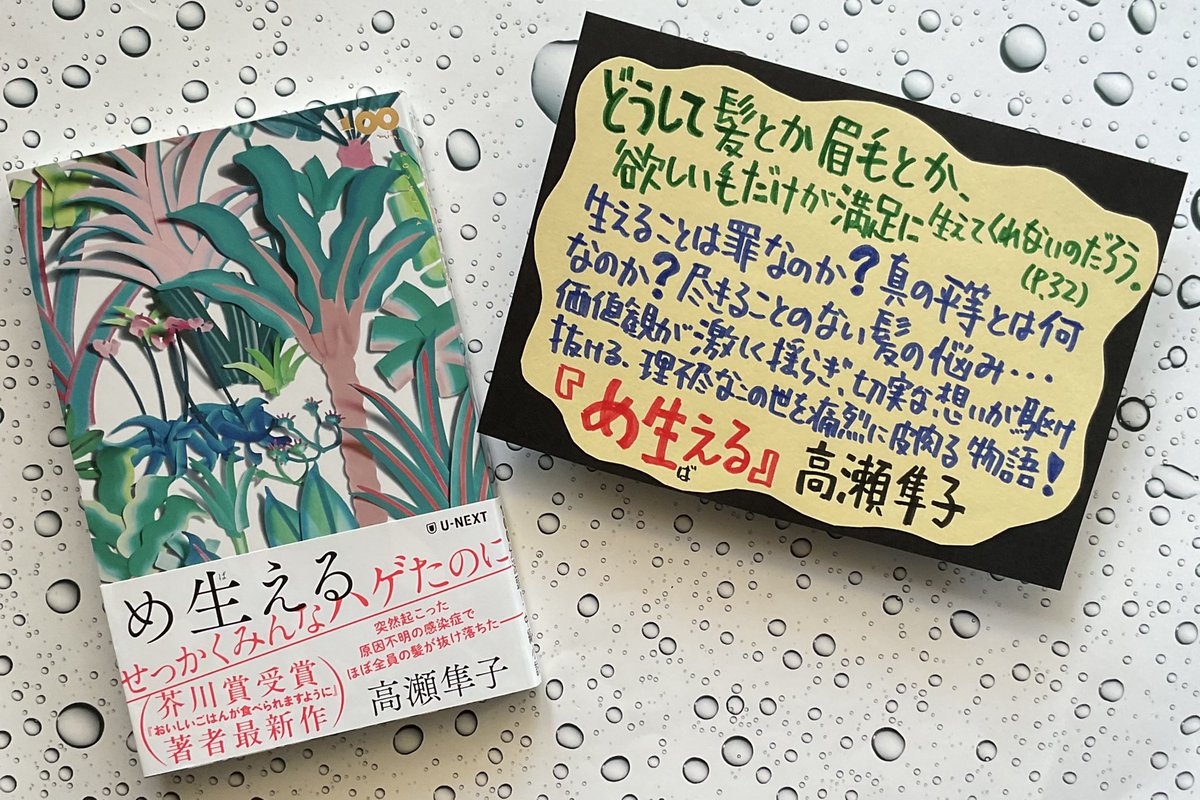 100
U-NEXT
め生える
ば
せっかくみんなハゲたのに
突然起こった
原因不明の感染症で
ほぼ全員の髪が抜け落ちた――
芥川賞受賞
『おいしいごはんが食べられますように』
著者最新作
高瀬隼子
どうして髪とか眉毛とか、
欲しい毛だけが満足に生えてくれないのだろう。
(P.32)
生えることは罪なのか?真の平等とは何
なのか?尽きることのない髪の悩み・・・
価値観が激しく揺らぎ、切実な想いが駆け
抜ける、理不尽なこの世を痛烈に皮肉る物語!
『め生える』
ば
高瀬隼子